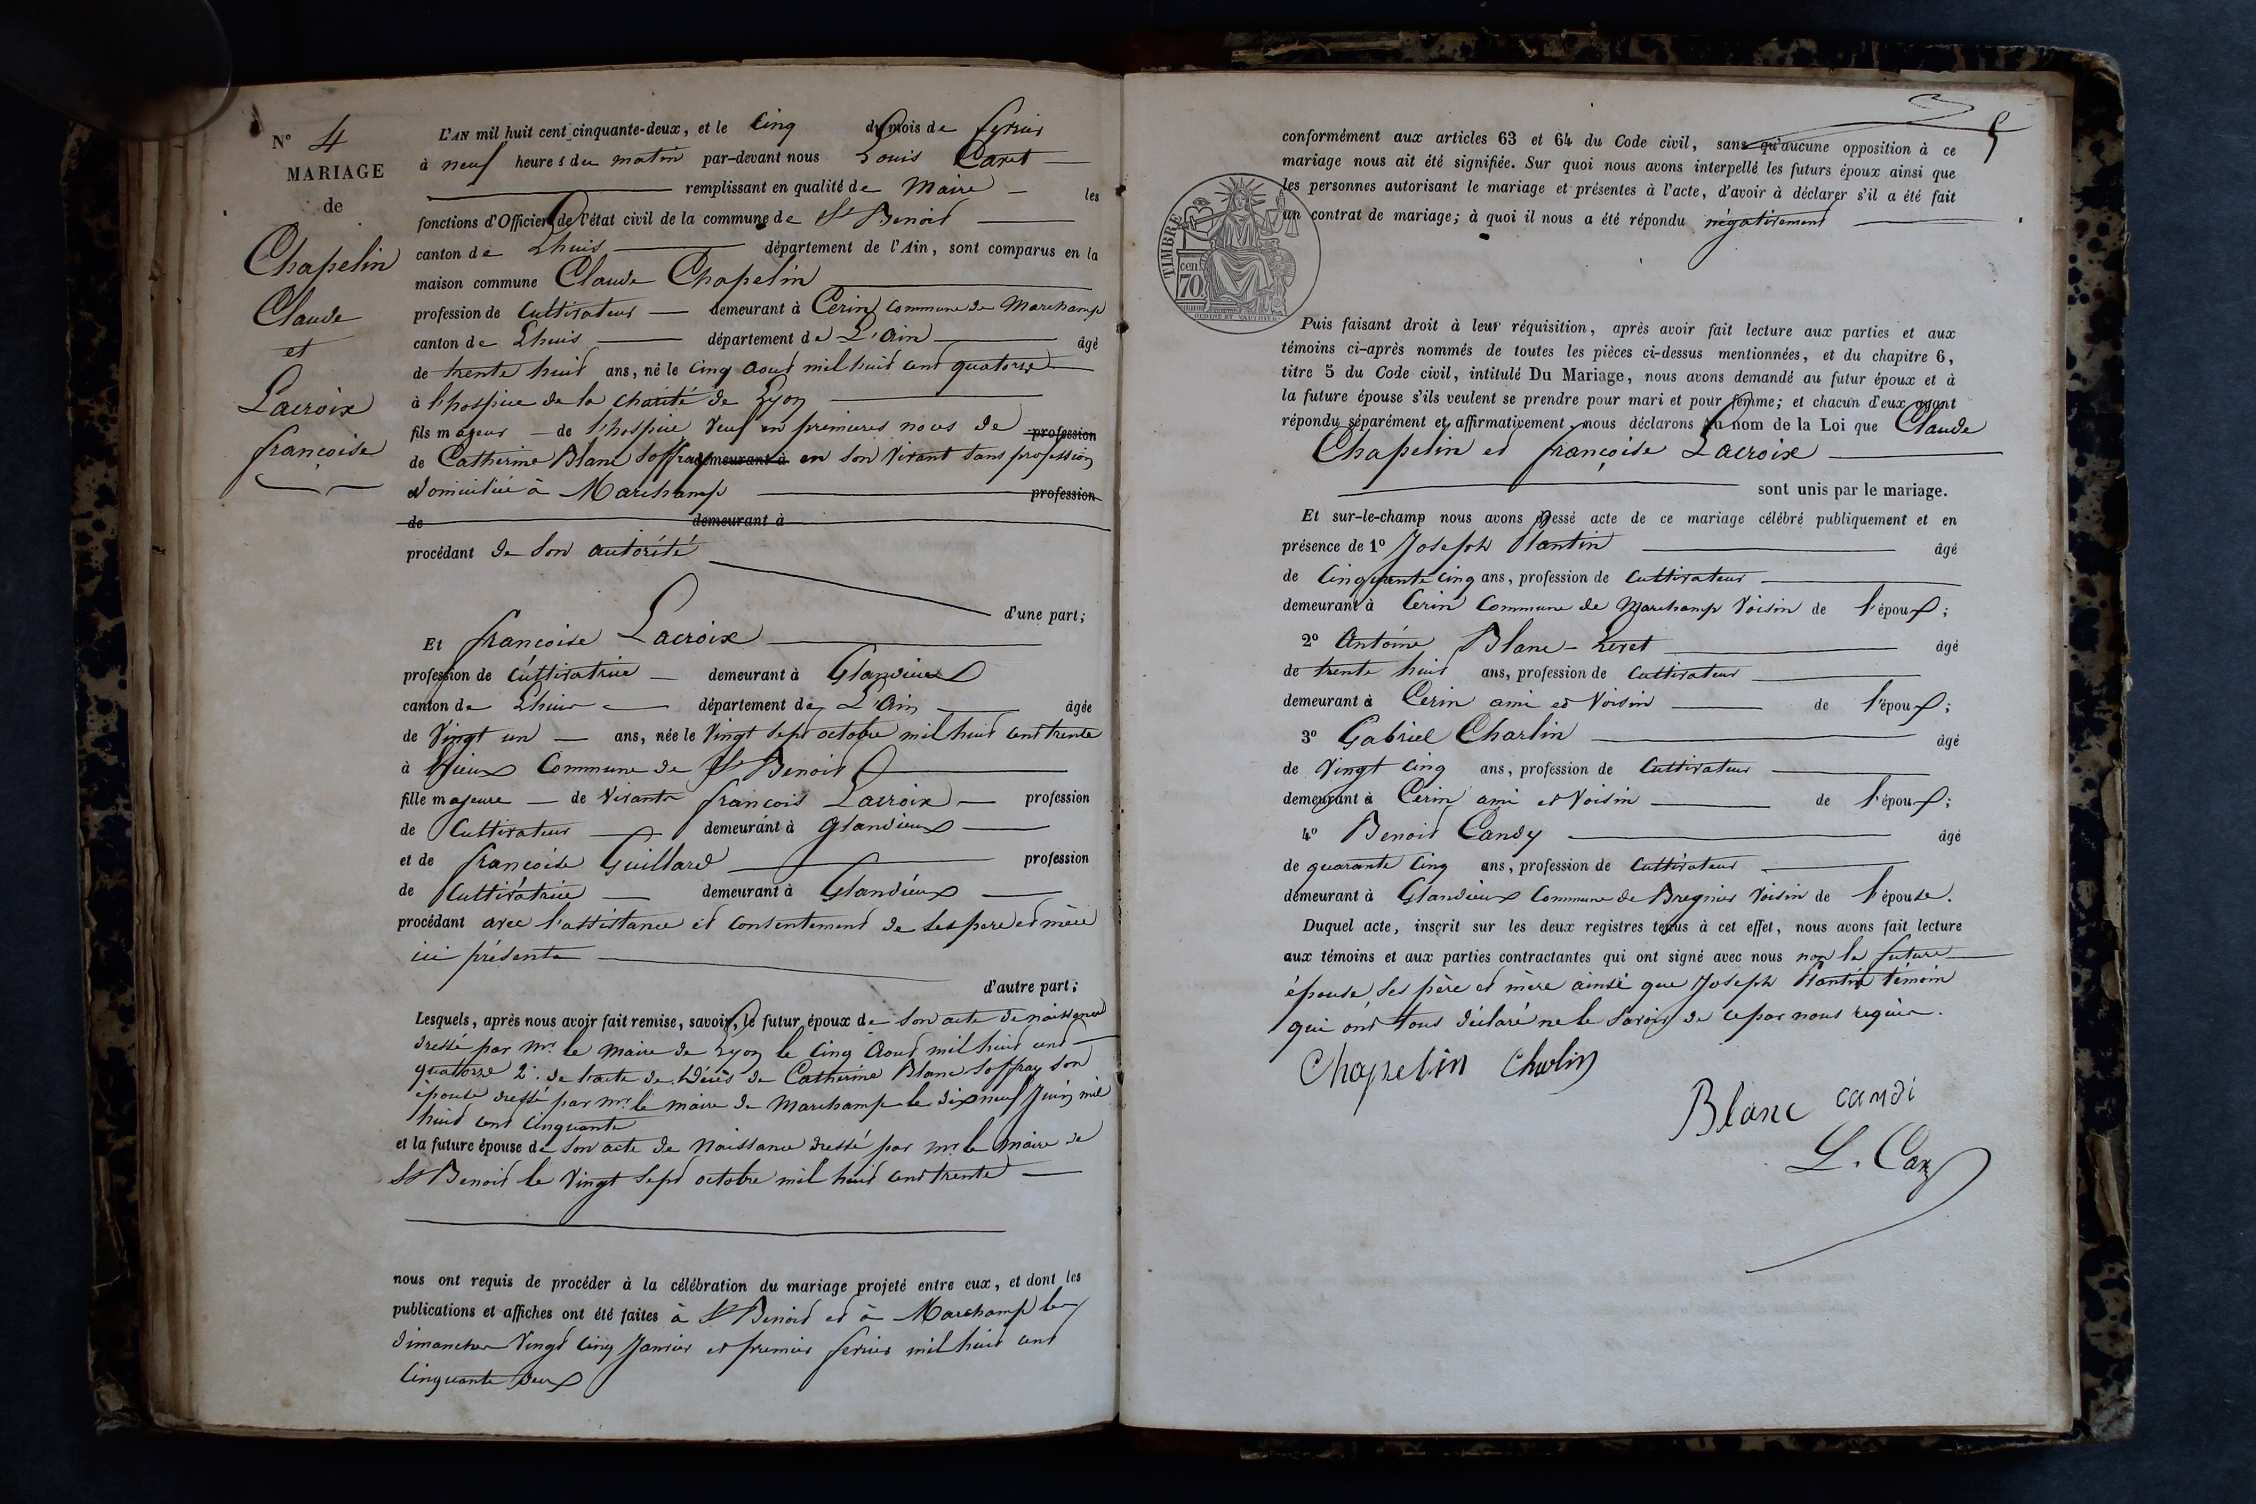 N° 4
MARIAGE
de
Chapelin
Claude
et
Lacroix
françoise
L'AN mil huit cent cinquante-deux, et le Cinq du mois de fevrier
à neuf heures du matin par-devant nous Louis Caret
remplissant en qualité de Maire les
fonctions d'Officier de l'état civil de la commune de St Benoit
canton de Lhuis département de l'Ain, sont comparus en la
maison commune Claude Chapelin
profession de Cultivateur demeurant à Cerin Commune de Marchamp
canton de Lhuis département de L'Ain âgé
de trente huit ans, né le Cinq aout mil huit cent quatorze
à l'hospice de la charité de Lyon
fils majeur de l'hospice Veuf en premieres noces de profession
de Catherine Blanc Soffray demeurant à en son Vivant sans profession
domiciliée à Marchamp profession
de demeurant à
procédant de son autorité
d'une part;
Et françoise Lacroix
profession de Cultivatrice demeurant à Glandieux
canton de Lhuis département de L'Ain âgée
de Vingt un ans, née le Vingt sept octobre mil huit cent trente
à Commune de St Benoit
fille majeure de Vivants françois Lacroix profession
de Cultivateur demeurant à Glandieux
et de françoise Guillard profession
de Cultivatrice demeurant à Glandieux
procédant avec l'assistance et consentement de ses pere et mère
ici présents
d'autre part;
Lesquels, après nous avoir fait remise, savoir, le futur époux de son acte de naissance
dressé par Mr le Maire de Lyon le Cinq Aout mil huit cent
quatorze 2° de l'acte de Décès de Catherine Blanc Soffray son
épouse dressé par mr le maire de Marchamp le dix neuf Juin mil
huit cent Cinquante
et la future épouse de son acte de Naissance dressé par mr le Maire de
St Benoit le Vingt sept octobre mil huit cent trente
nous ont requis de procéder à la célébration du mariage projeté entre eux, et dont les
publications et affiches ont été faites à St Benoit et à Marchamp les
dimanches Vingt Cinq Janvier et premier fevrier mil huit cent
Cinquante deux
5
conformément aux articles 63 et 64 du Code civil, sans qu'aucune opposition à ce
mariage nous ait été signifiée. Sur quoi nous avons interpellé les futurs époux ainsi que
les personnes autorisant le mariage et présentes à l'acte, d'avoir à déclarer s'il a été fait
un contrat de mariage; à quoi il nous a été répondu négativement
TIMBRE
cen.
70
Puis faisant droit à leur réquisition, après avoir fait lecture aux parties et aux
témoins ci-après nommés de toutes les pièces ci-dessus mentionnées, et du chapitre 6,
titre 5 du Code civil, intitulé Du Mariage, nous avons demandé au futur époux et à
la future épouse s'ils veulent se prendre pour mari et pour femme; et chacun d'eux ayant
répondu séparément et affirmativement, nous déclarons au nom de la Loi que Claude
Chapelin et françoise Lacroix
sont unis par le mariage.
Et sur-le-champ nous avons dressé acte de ce mariage célébré publiquement et en
présence de 1° Joseph Plantin âgé
de Cinquante cinq ans, profession de Cultivateur
demeurant à Cerin Commune de Marchamp Voisin de l'époux;
2° Antoine Blanc- âgé
de trente huit ans, profession de Cultivateur
demeurant à Cerin ami et Voisin de l'époux;
3° Gabriel Charlin âgé
de Vingt Cinq ans, profession de Cultivateur
demeurant à Cerin ami et Voisin de l'époux;
4° Benoit Candy âgé
de quarante Cinq ans, profession de Cultivateur
demeurant à Glandieux Commune de Bregnier Voisin de l'épouse.
Duquel acte, inscrit sur les deux registres tenus à cet effet, nous avons fait lecture
aux témoins et aux parties contractantes qui ont signé avec nous non la future
épouse, ses père et mère ainsi que Joseph Plantin témoin
qui ont tous déclaré ne le savoir de ce par nous requis.
Chapelin Charlin
Blanc candi
L. Car